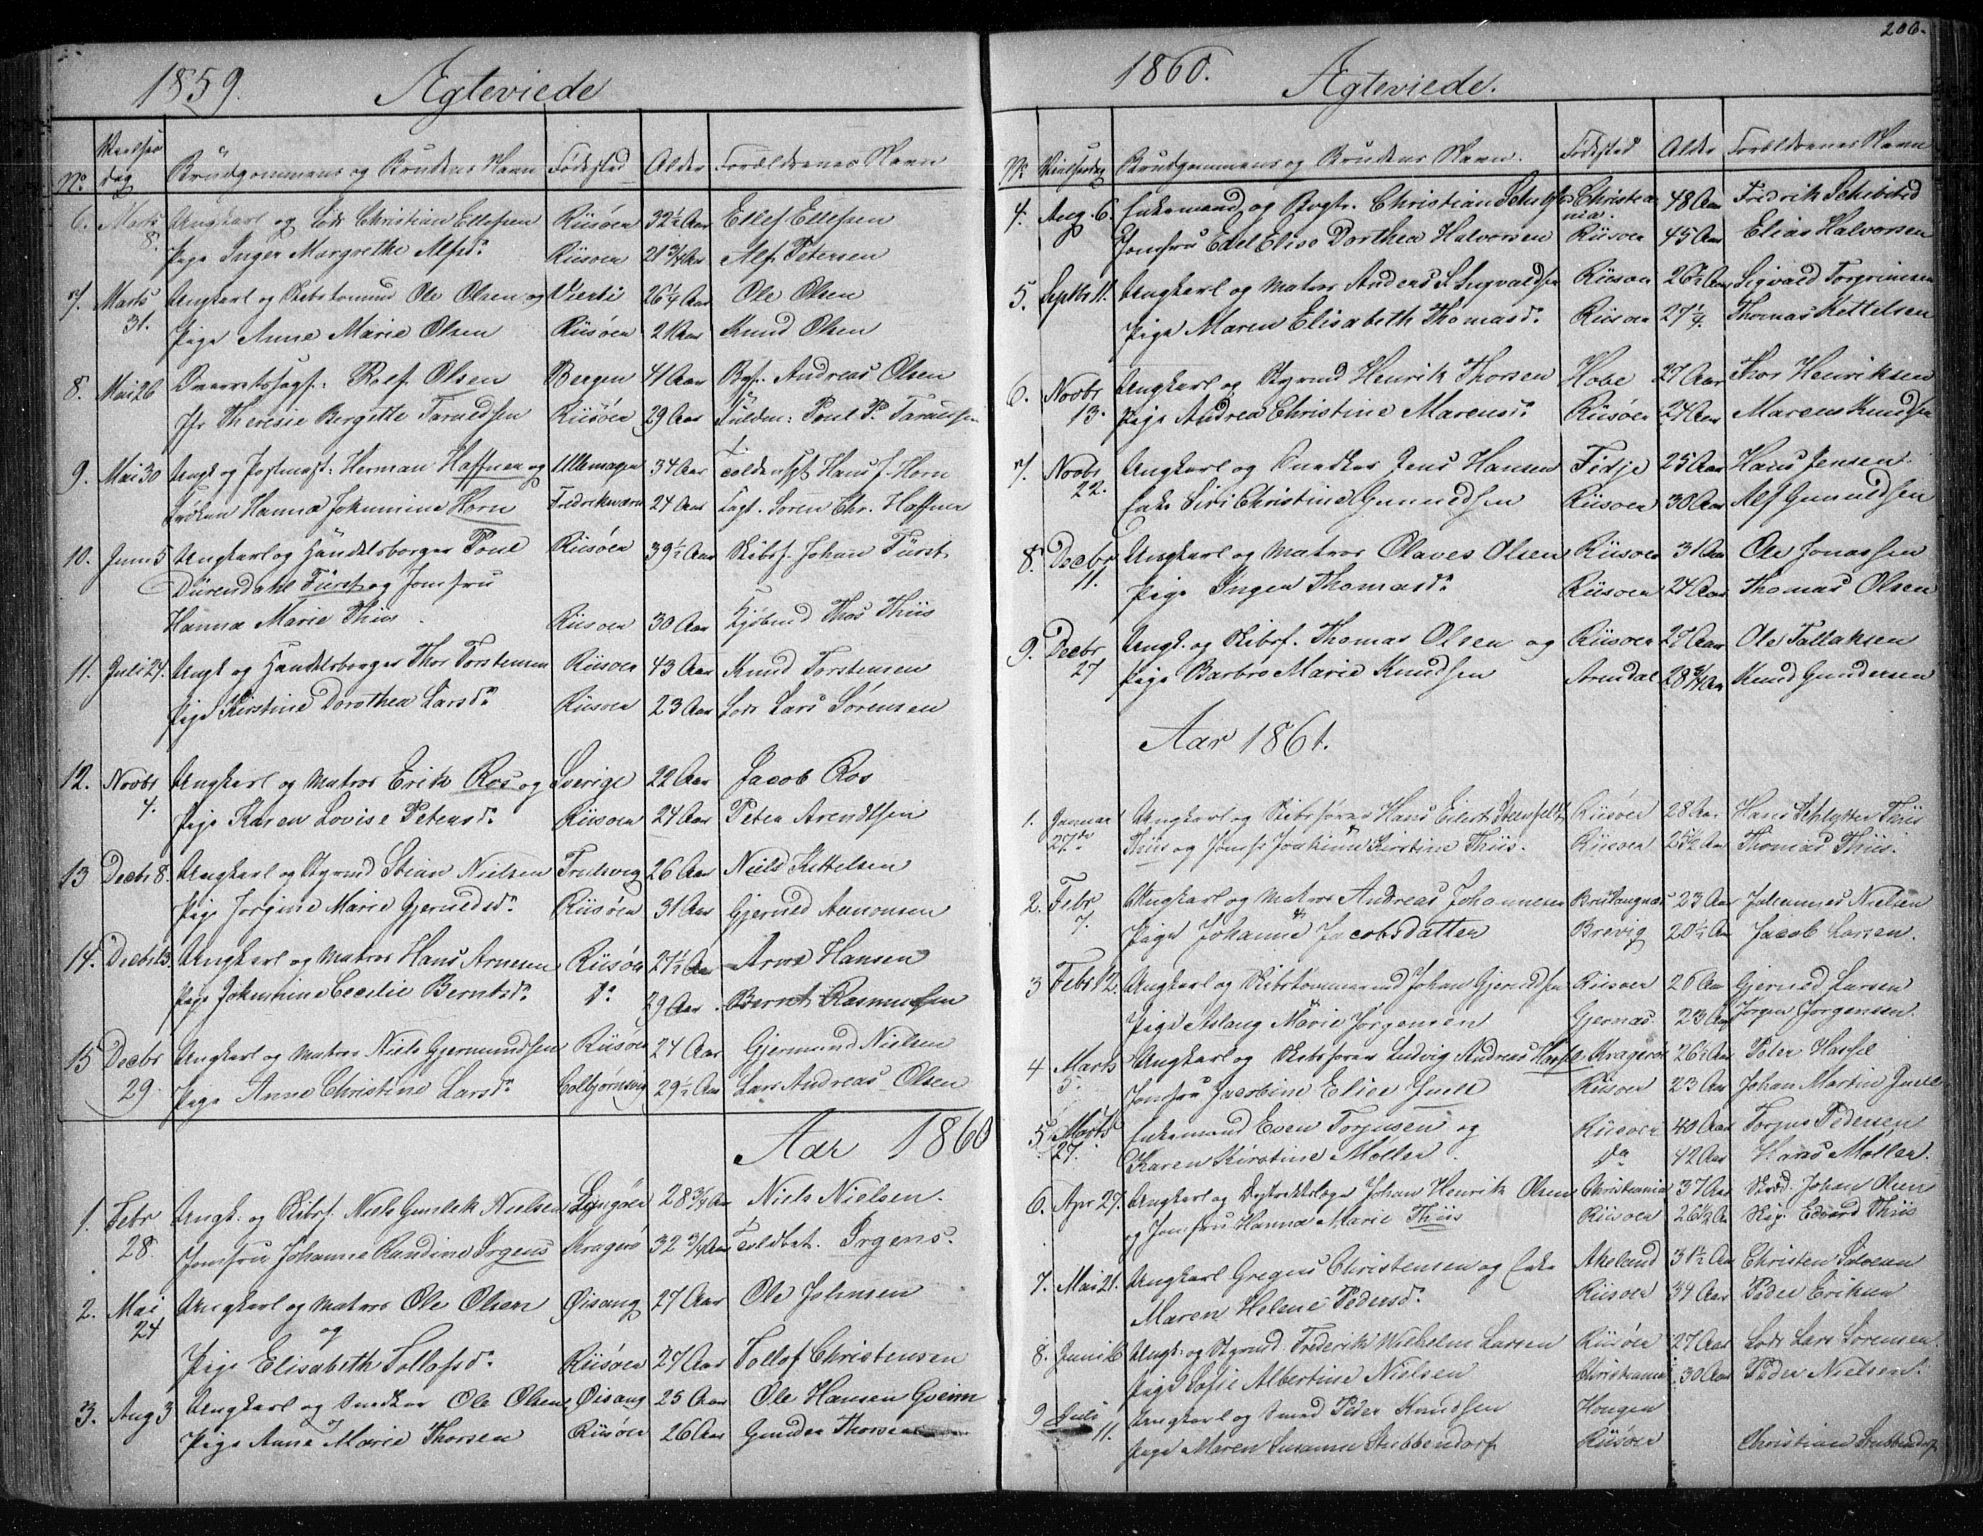 1859. Ægteviede
No Vielses dag Brudgommens og Brudens Navn Fødested Alder Forældrenes Navn
6. Marts 8. Ungkarl og Lods Christian Ellefsen Riisøer 32½ Aar Ellef Ellefsen
Pige Inger Margrethe Alfsd. Riisøer 21¾ Aar Alf Petersen
7. Marts 31. Ungkarl og Skibstømmd Ole Olsen og 26¼ Aar Ole Olsen
Pige Anne Marie Olsen Riisøer 21 Aar Knud Olsen
8. Mai 26 Rolf Olsen Bergen 41 Aar Andreas Olsen
Jfr Theresie Bergitte Riisøer 29 Aar Poul P.
9. Mai 30 Ungk og Postmest: Herman Haffner og 34 Aar Hans J. Horn
Frøken Hanna Johannine Horn Fredriksværn 24 Aar Capt. Søren Chr. Haffner
10. Juni 5 Ungkarl og Handelsborger Poul Riisøer 39½ Aar Skibsf. Johan Fürst
Dürendahl Fürst og Jomfru
Hanna Marie Thiis Riisøer 30 Aar Kjøbmd Thos Thiis
11. Juli 24. Ungk og Handelsborger Thor Torstensen Riisøer 43 Aar Knud Torstensen
Pige Kirstine Dorothea Larsd. Riisøer 23 Aar Lods Lars Sørensen
12. Novbr 4. Ungkarl og Matros Erik Ros og Sverige 22 Aar Jacob Ros
Pige Karen Lovise Petersd. Riisøer 24 Aar Peter Arendtsen
13 Decbr 8. Ungkarl og Styrmd Stian Nielsen 26 Aar Niels Kittelsen
Pige Jorgine Marie Gjerulds d. Riisøer 31 Aar Gjeruld Aanonsen
14. Decbr 13. Ungkarl og Matros Hans Arnesen Riisøer 21½ Aar Arne Hansen
Pige Johannine Cecilie Berntsd. Do 29 Aar Bernt Rasmussen
15 Decbr 29. Ungkarl og Matros Niels Gjermundsen Riisøer 24 Aar Gjermund Nielsen
Pige Anne Christine Larsd. Colbjørnsvig 29½ Aar Lars Andreas Olsen
Aar 1860
1. Febr 28. Ungk: og Skibsf. Niels Gundelk Nielsen Lyngøer 28¾ Aar Niels Nielsen.
Jomfru Johanne Randine Irgens Kragerø 32¾ Aar Toldbet. Irgens.
2. Mai 24 Ungkarl og Matros Ole Olsen Øisang 27 Aar Ole Johnsen
og
Pige Elisabeth Tollofsd. Riisøer 27 Aar Tollof Christensen
3. Aug 3 Ungkarl og Snedker Ole Olsen Øisang 25 Aar Ole Hansen
Pige Anne Marie Thorsen Riisøer 26 Aar Gunder Thorsen
206.
1860. Ægteviede.
No Vielsesdag Brudgommens og Brudens Navn. Fødested Alder Forældrenes Navn
4. Aug. 6. Enkemand og Bogtr. Christian Schibsted Christiania. 48 Aar Fredrik Schibsted
Jomfru Edel Elise Dorthea Halvorsen Riisøer 45 Aar Elias Halvorsen
5. Septbr 11. Ungkarl og Matros Anders S. Sigvaldsen Riisøer 26½ Aar Sigvald Torgrimsen
Pige Maren Elisabeth Thomasd. Riisøer 27¼. Thomas Kettelsen
6. Novbr 13. Ungkarl og Styrmd Henrik Thorsen Hobe 27 Aar Thor Henriksen
Pige Andrea Christine Marensd. Riisøer 24 Aar Marens Knudsen
7. Novbr 22. Ungkarl og Snedker Jens Hansen Fidje 25 Aar Hans Jensen.
Enke Siri Christine Gunuldsen Riisøer 30 Aar Alf Gunuldsen
8. Decbr 11. Ungkarl og Matros Olaves Olsen Riisøer 31 Aar Ole Jonassen
Pige Inger Thomasd. Riisøer 24 Aar Thomas Olsen
9. Decbr 27 Ungk. og Skibsf. Thomas Olsen og Riisøer 27 Aar Ole Tallaksen
Pige Barbro Marie Knudsen Arendal 28¾ Aar Knud Gundersen
Aar 1861.
1. Januar 27de Ungkarl og Skibsfører Hans Eilert Steenfeldt Riisøer 28 Aar. Hans Schlytter Thiis
Thiis og Jomfr Joakime Kirstine Thiis. Riisøer 25½ Aar Thomas Thiis.
2. Febr 7. Ungkarl og Matros Andreas Johannesen 23 Aar Johannes Nielsen
Pige Johanne Jacobsdatter Brevig 20½ Aar Jacob Larsen.
3 Febr 12. Ungkarl og Skibstømmermd Johan Gjeruldsen Riisøer 26 Aar Gjeruld Larsen
Pige Aslaug Marie Jørgensen Gjernæs. 23 Aar Jørgen Jørgensen.
4 Marts 5. Ungkarl og Skibsfører Ludvig Andreas Hassel Kragerø 26½ Aar Peter Hassel
Jomfru Jacobine Elise Juell Riisøer 23 Aar Johan Martin Juell
5 Marts 27. Enkemand Even Torjusen og Riisøer 40 Aar Torjus Pedersen
Karen Kirstine Møller. Do 42 Aar Hans Møller.
6. Apr 27. Ungkarl og Distriktslæge Johan Henrik Olsen Christiania 37 Aar Johan Olsen
og Jomfru Hanna Marie Thiis Riisøer 26½ Aar Edvard Thiis
7. Mai 21. Ungkarl Gregius Christensen og Enke Akeland 31½ Aar Christen
Maren Helene Pedersd. Riisøer 34 Aar Peder Eriksen
8. Juni 16 Ungk: og Styrmd. Frederik Wilhelm Larsen Riisøer 27 Aar Lods Lars Sørensen.
Pige Sofie Albertine Nielsen Christiania 30 Aar Peder Nielsen.
9 Juli 11. Ungkarl og Smed Peder Knudsen Hougen
Pige Maren Susanne Stubbendorf Riisøer Christian Stubbendorf